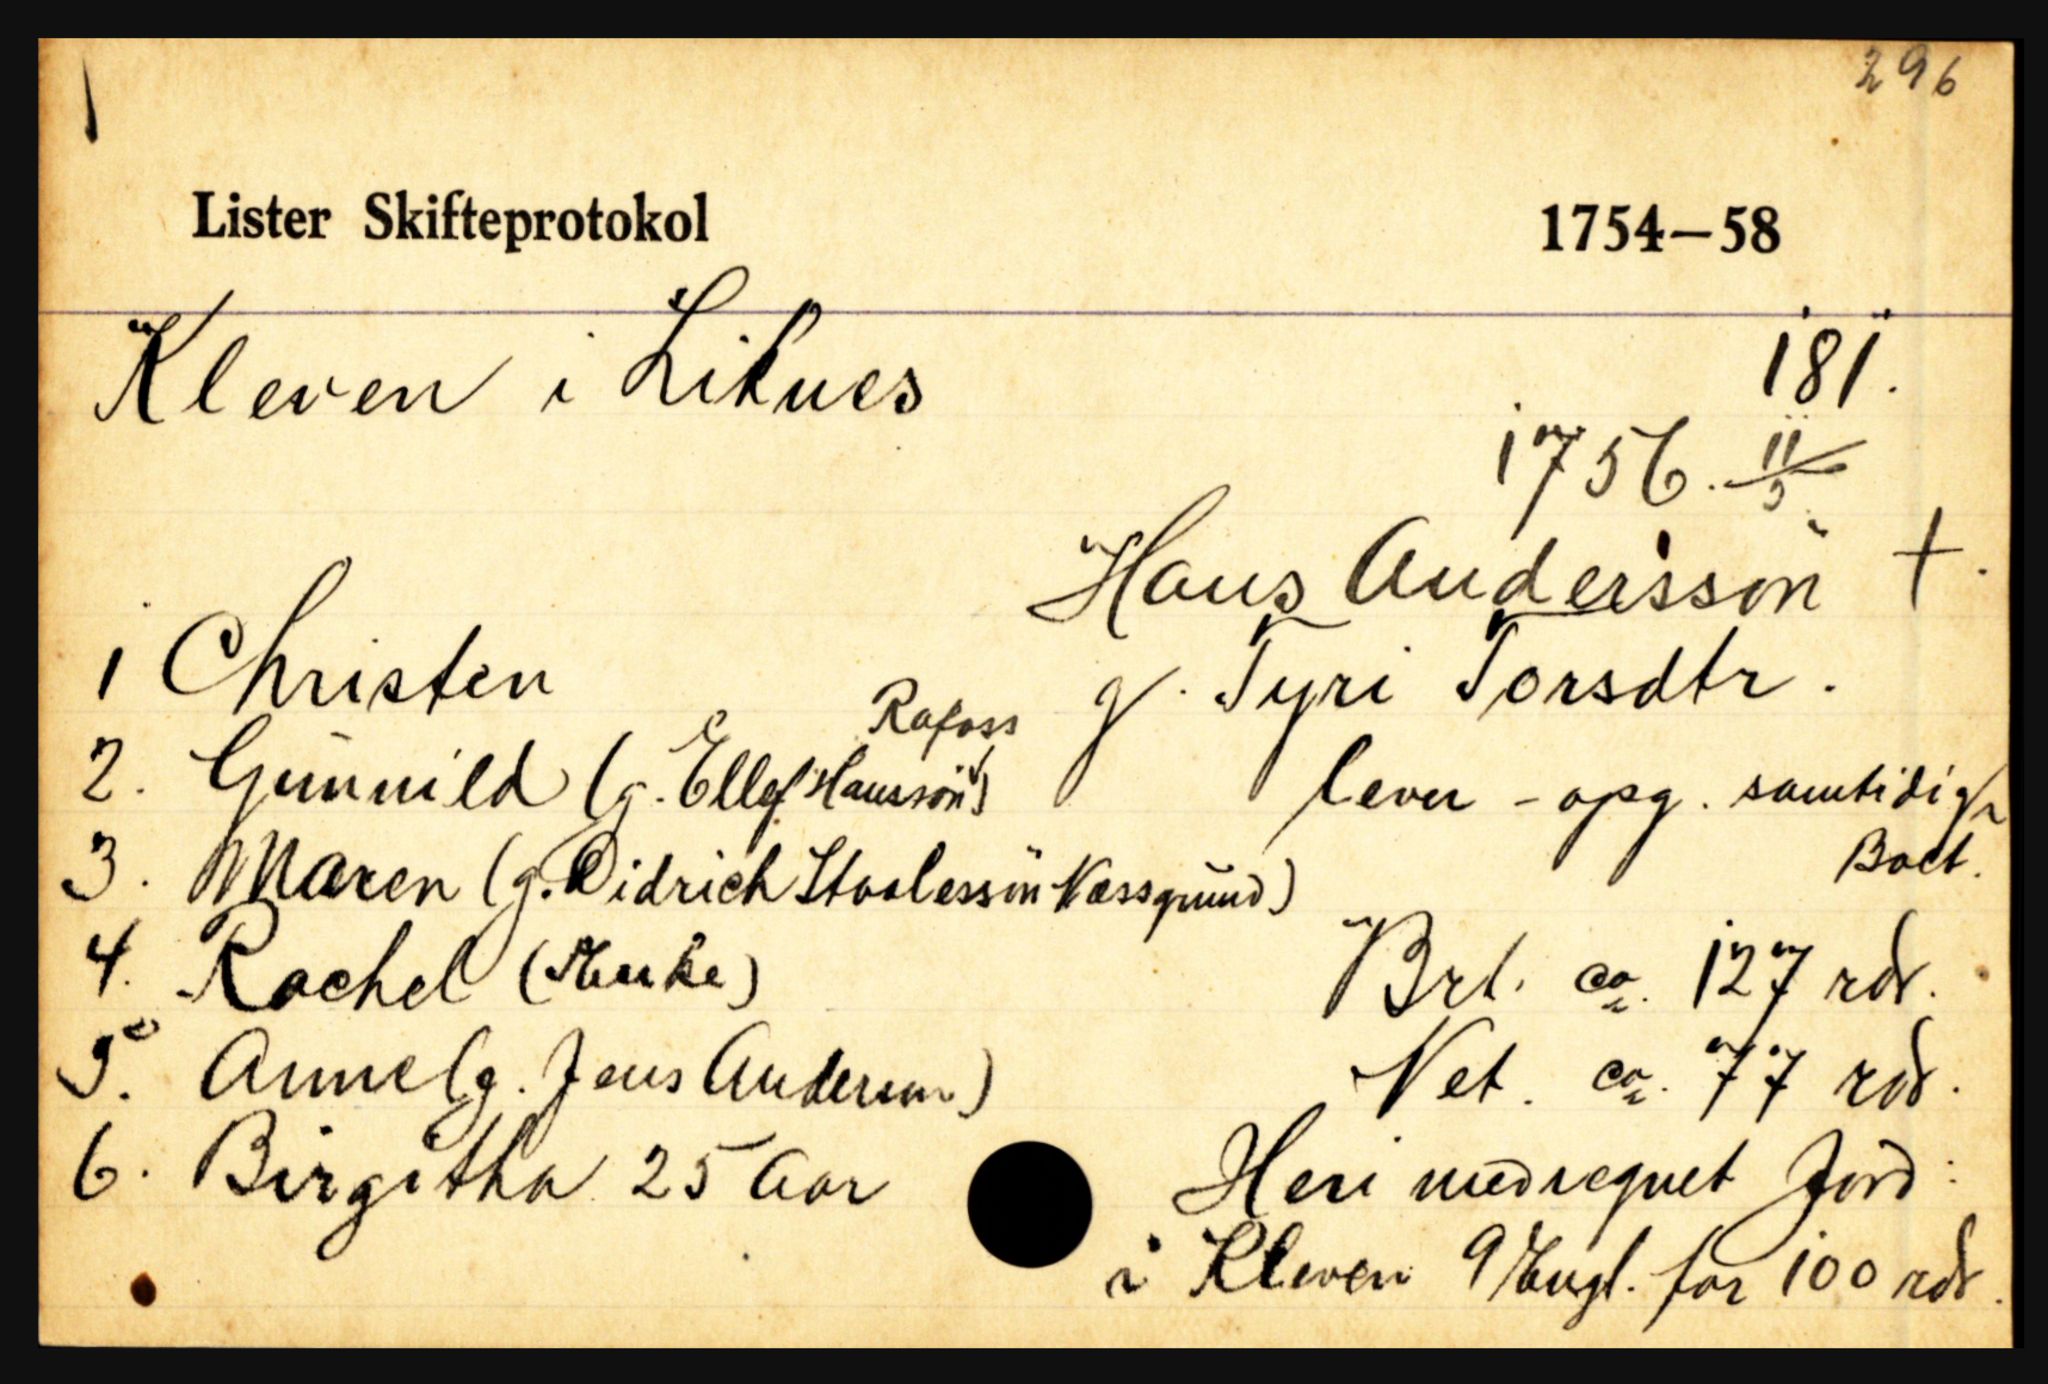 296
Lister Skifteprotokol 1754–58
Kleven i Liknes 181.
1756. 11/5
Hans Andersson †.
g. Tyri Torsdtr.
lever - opg. samtidig
Boet.
Brt. ca. 127 rdr.
Net. ca. 77 rdr.
Heri medregnet Jord:
i Kleven 9 Engl. for 100 rdr.
1 Christen
Rafoss
2. Gunnild (g. Ellef Hanssøn)
3. Maren (g. Didrich Staalessøn Næssgrund)
4. Rachel (Enke)
5. Anne (g. Jens Anderssøn)
6. Birgitha 25 Aar